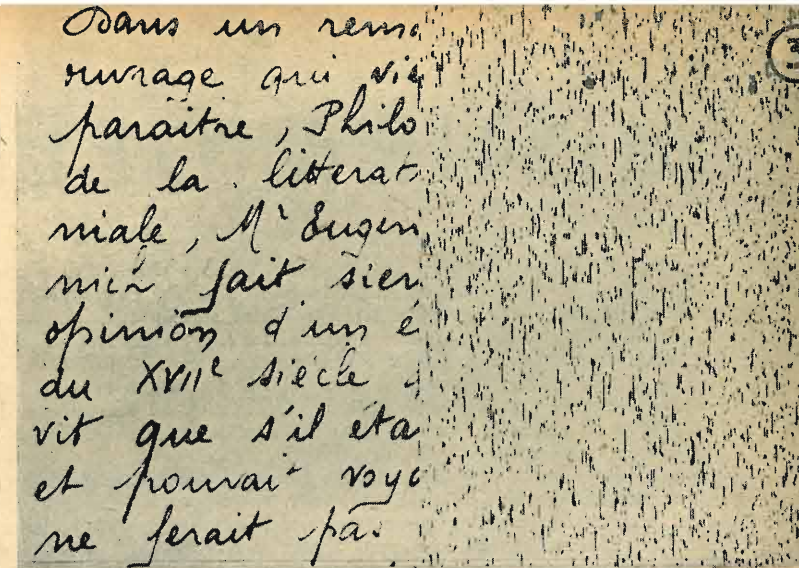 Dans un rem
ouvrage qui vie
paraître, Philo
de la litterat
niale, Mr Eugen
nier fait sien
opinion d'un é
du XVIIe siècle
vit que s'il éta
et pouvait voya
ne ferait pas
3